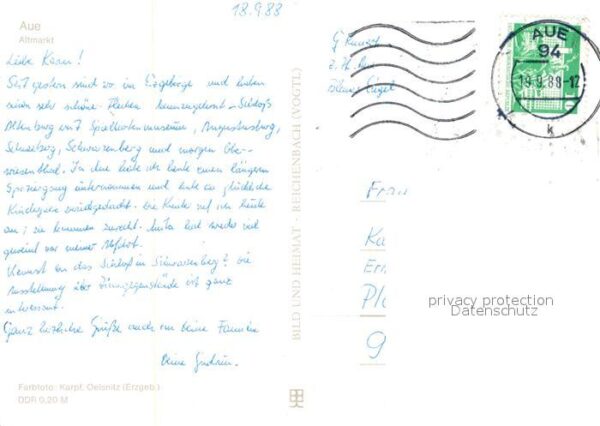 18.9.88
Aue
Altmarkt
Liebe Karin!
Seit gestern sind wir im Erzgebirge und haben
schon sehr schöne kennengelernt – Schloß
Altenburg mit Spielkartenmuseum, Augustusburg,
Schneeberg, Schwarzenberg und morgen Ober-
wiesenthal. In Aue habe ich heute einen längeren
Spaziergang unternommen und habe an glückliche
Kindertage zurückgedacht. Die Kinder rief ich heute
an; sie kommen zurecht. hat wieder viel
geweint vor meiner Abfahrt.
Kennst du das Schloß in Schwarzenberg? Die
Ausstellung über Zinngegenstände ist ganz
interessant.
Ganz herzliche Grüße auch an deine Familie
Deine Gudrun.
Farbfoto: Karpf, Oelsnitz (Erzgeb.)
DDR 0,20 M
BILD UND HEIMAT · REICHENBACH (VOGTL)
z. Zt. Aue
Blauer Engel
AUE
94
19.9.88-12
k
10
Frau
Ka
Er
Pl
9
privacy protection
Datenschutz